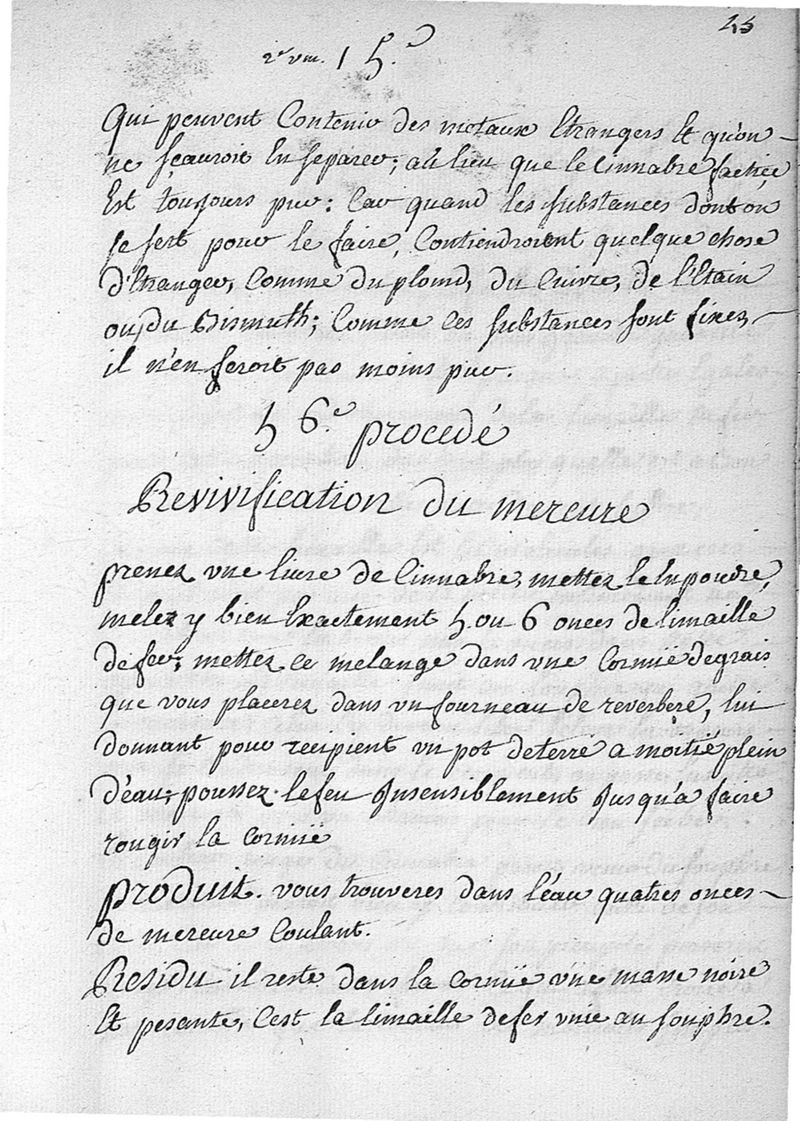 45
2e vm. 15.e
Qui peuvent Contenir des metaux Etrangers Et qu'on
ne sçauroit En separer; au lieu que le Cinnabre factice
Est toujours pur: Car quand les substances dont on
se sert pour le faire, Contiendroient quelque chose
d'Etranger, Comme du plomb, du Cuivre, de l'Etain
ou du Bismuth; Comme Ces substances sont fixes,
il n'en seroit pas moins pur.
56.e procedé
Revivification du mercure
prenez vne livre de Cinnabre, mettez le En poudre,
melez y bien Exactement 5 ou 6 onces de limaille
de fer; mettez ce melange dans vne Cornüe de grais
que vous placerez dans vn fourneau de reverbere, lui
donnant pour recipient vn pot de terre a moitié plein
d'eau; poussez le feu Insensiblement Jusqu'a faire
rougir la cornüe
produit. vous trouveres dans l'eau quatres onces
de mercure Coulant.
Residu il reste dans la cornüe vne masse noire
Et pesante, C'est la limaille de fer vnie au souphre.